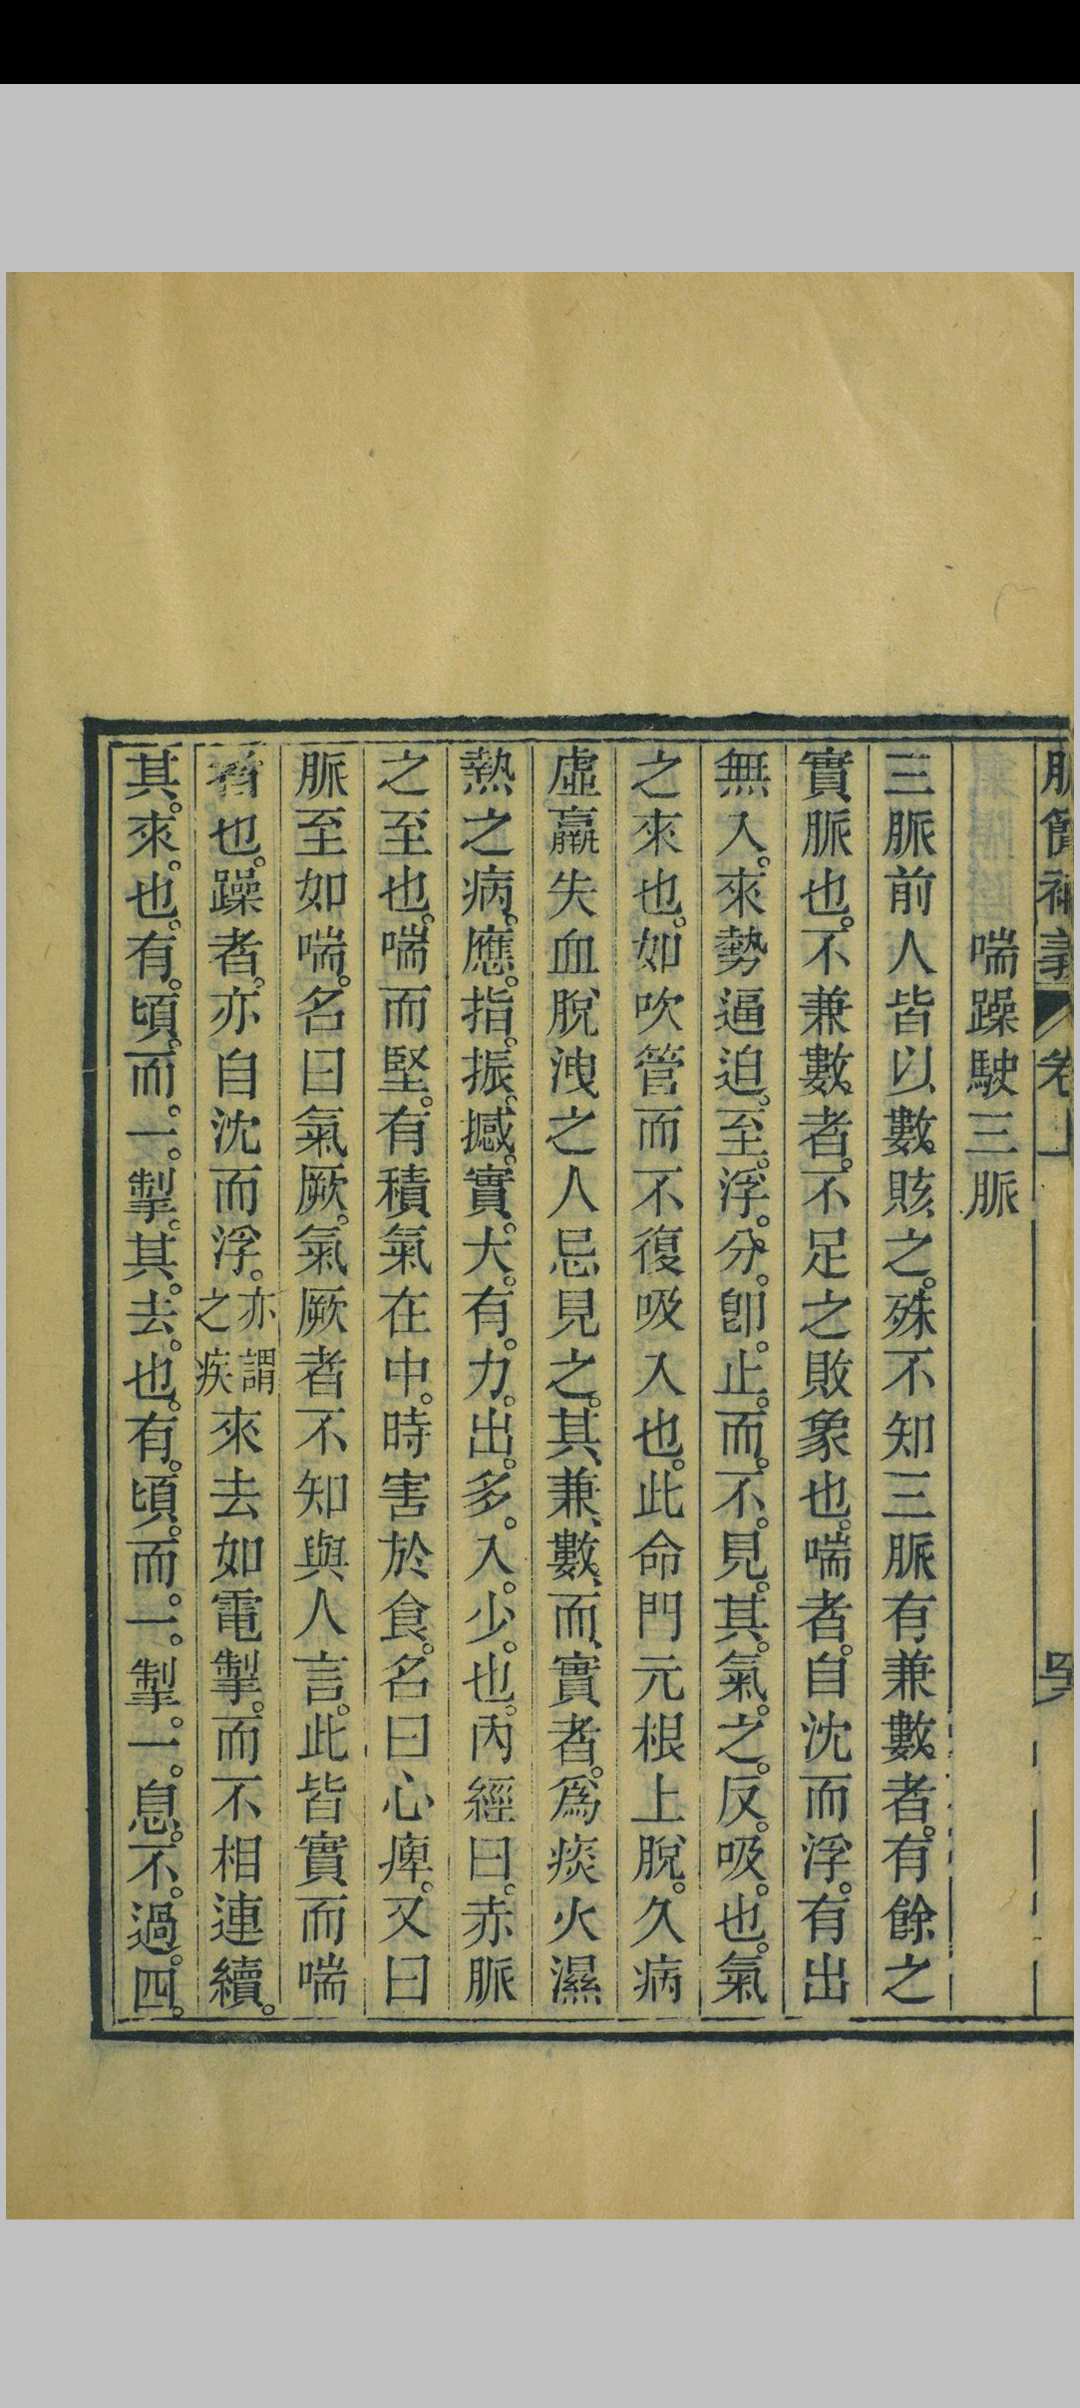 脈簡補義 卷上
喘躁駛三脈
三脈前人皆以數賅之。殊不知三脈有兼數者。有餘之
實脈也。不兼數者。不足之敗象也。喘者。自沈而浮。有出
無入。來勢逼迫。至。浮。分。卽。止。而。不。見。其。氣。之。反。吸。也。氣
之來也。如吹管而不復吸入也。此命門元根上脫。久病
虛羸失血脫洩之人忌見之。其兼、數、而、實者。爲痰火濕
熱之病。應。指。振。撼。實。大。有。力。出。多。入。少。也。內經曰。赤脈
之至也。喘而堅。有積氣在中。時害於食。名曰心痺。又曰
脈至如喘。名曰氣厥。氣厥者不知與人言。此皆實而喘
者也。躁者。亦自沈而浮。亦謂之疾來去如電掣。而不相連續。
其。來。也。有。頃。而。一。掣。其。去。也。有。頃。而。一。掣。一。息。不。過。四。